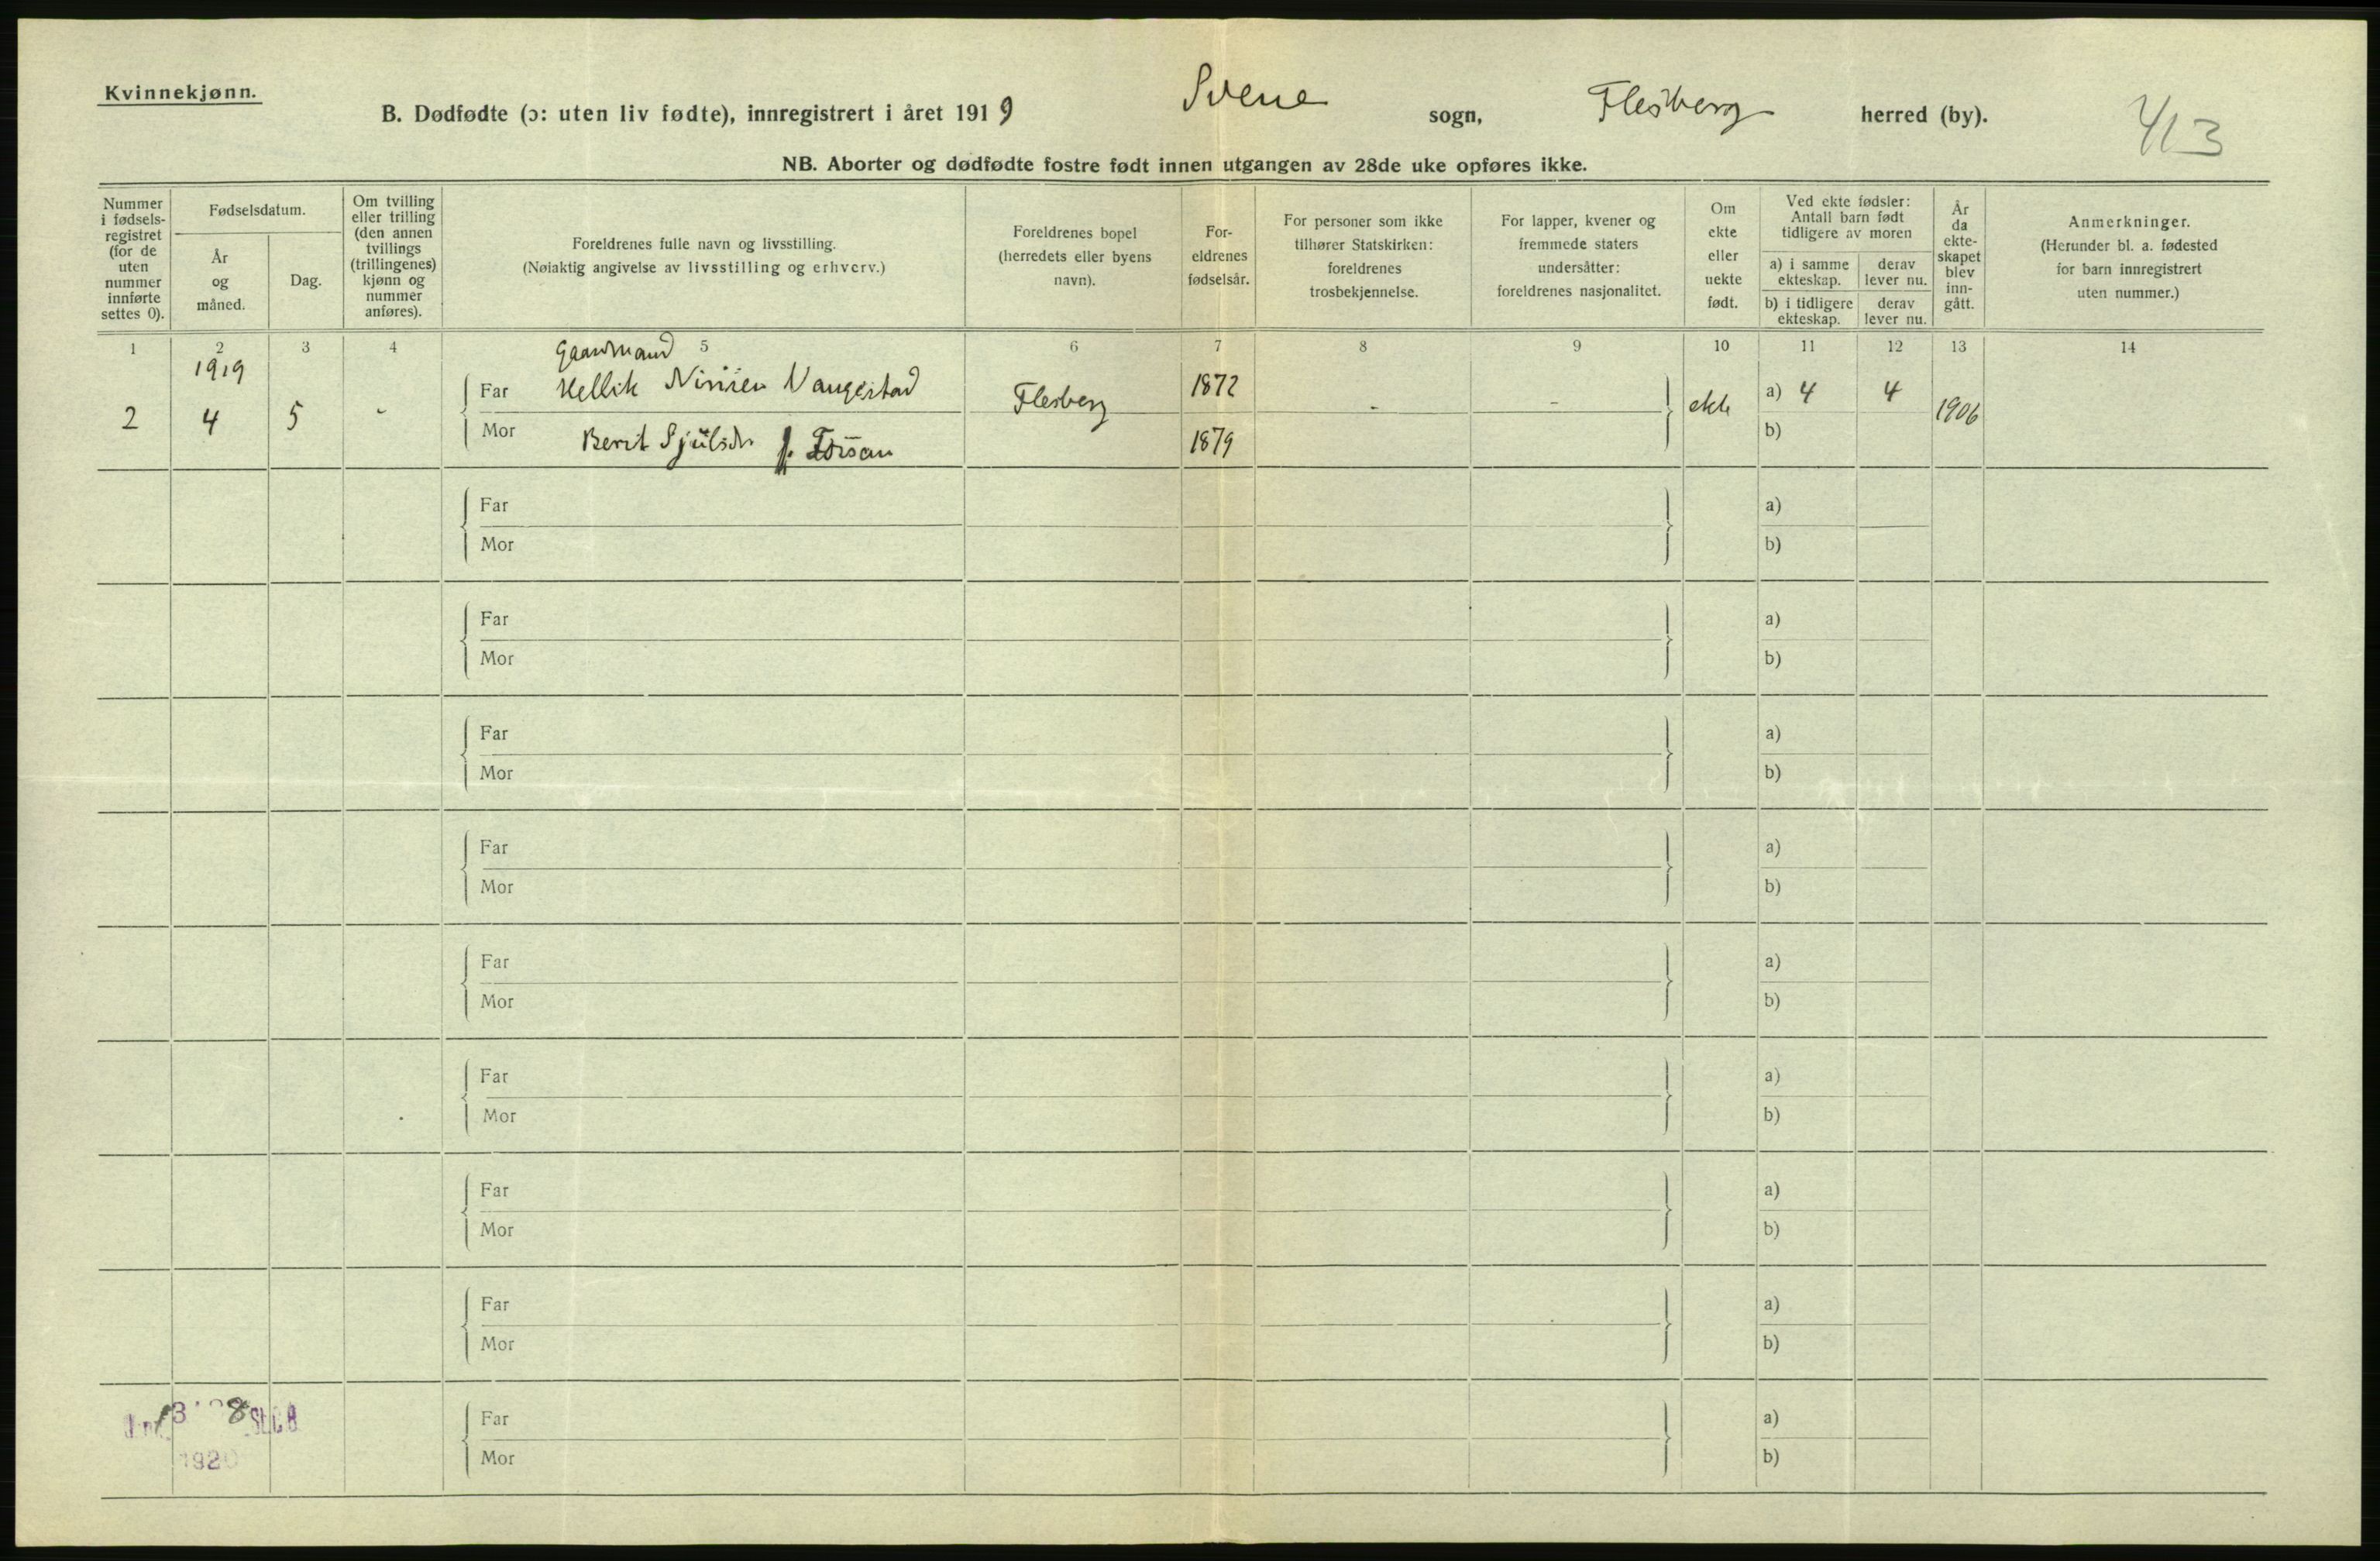 Kvinnekjønn.
B. Dødfødte (ɔ: uten liv fødte), innregistrert i året 1919 Svene sogn, Flesberg herred (by).
413
NB. Aborter og dødfødte fostre født innen utgangen av 28de uke opføres ikke.
Nummer i fødsels-registret (for de uten nummer innførte settes 0).
Fødselsdatum.
År og måned.
Dag.
Om tvilling eller trilling (den annen tvillings (trillingenes) kjønn og nummer anføres).
Foreldrenes fulle navn og livsstilling.
(Nøiaktig angivelse av livsstilling og erhverv.)
Foreldrenes bopel (herredets eller byens navn).
For-eldrenes fødselsår.
For personer som ikke tilhører Statskirken: foreldrenes trosbekjennelse.
For lapper, kvener og fremmede staters undersåtter: foreldrenes nasjonalitet.
Om ekte eller uekte født.
Ved ekte fødsler: Antall barn født tidligere av moren
a) i samme ekteskap.
derav lever nu.
b) i tidligere ekteskap.
derav lever nu.
År da ekte-skapet blev inn-gått.
Anmerkninger.
(Herunder bl. a. fødested for barn innregistrert uten nummer.)
1 2 3 4 5 6 7 8 9 10 11 12 13 14
1919 Gaardmand
Far Hellik Nirisen Vangestad 1872 a) 4 4
2 4 5 - Flesberg - - ekte 1906
Mor Berit Sjulsdr f. 1879 b)
Far a)
Mor b)
Far a)
Mor b)
Far a)
Mor b)
Far a)
Mor b)
Far a)
Mor b)
Far a)
Mor b)
Far a)
Mor b)
Far a)
Mor b)
Far a)
Mor b)
1920